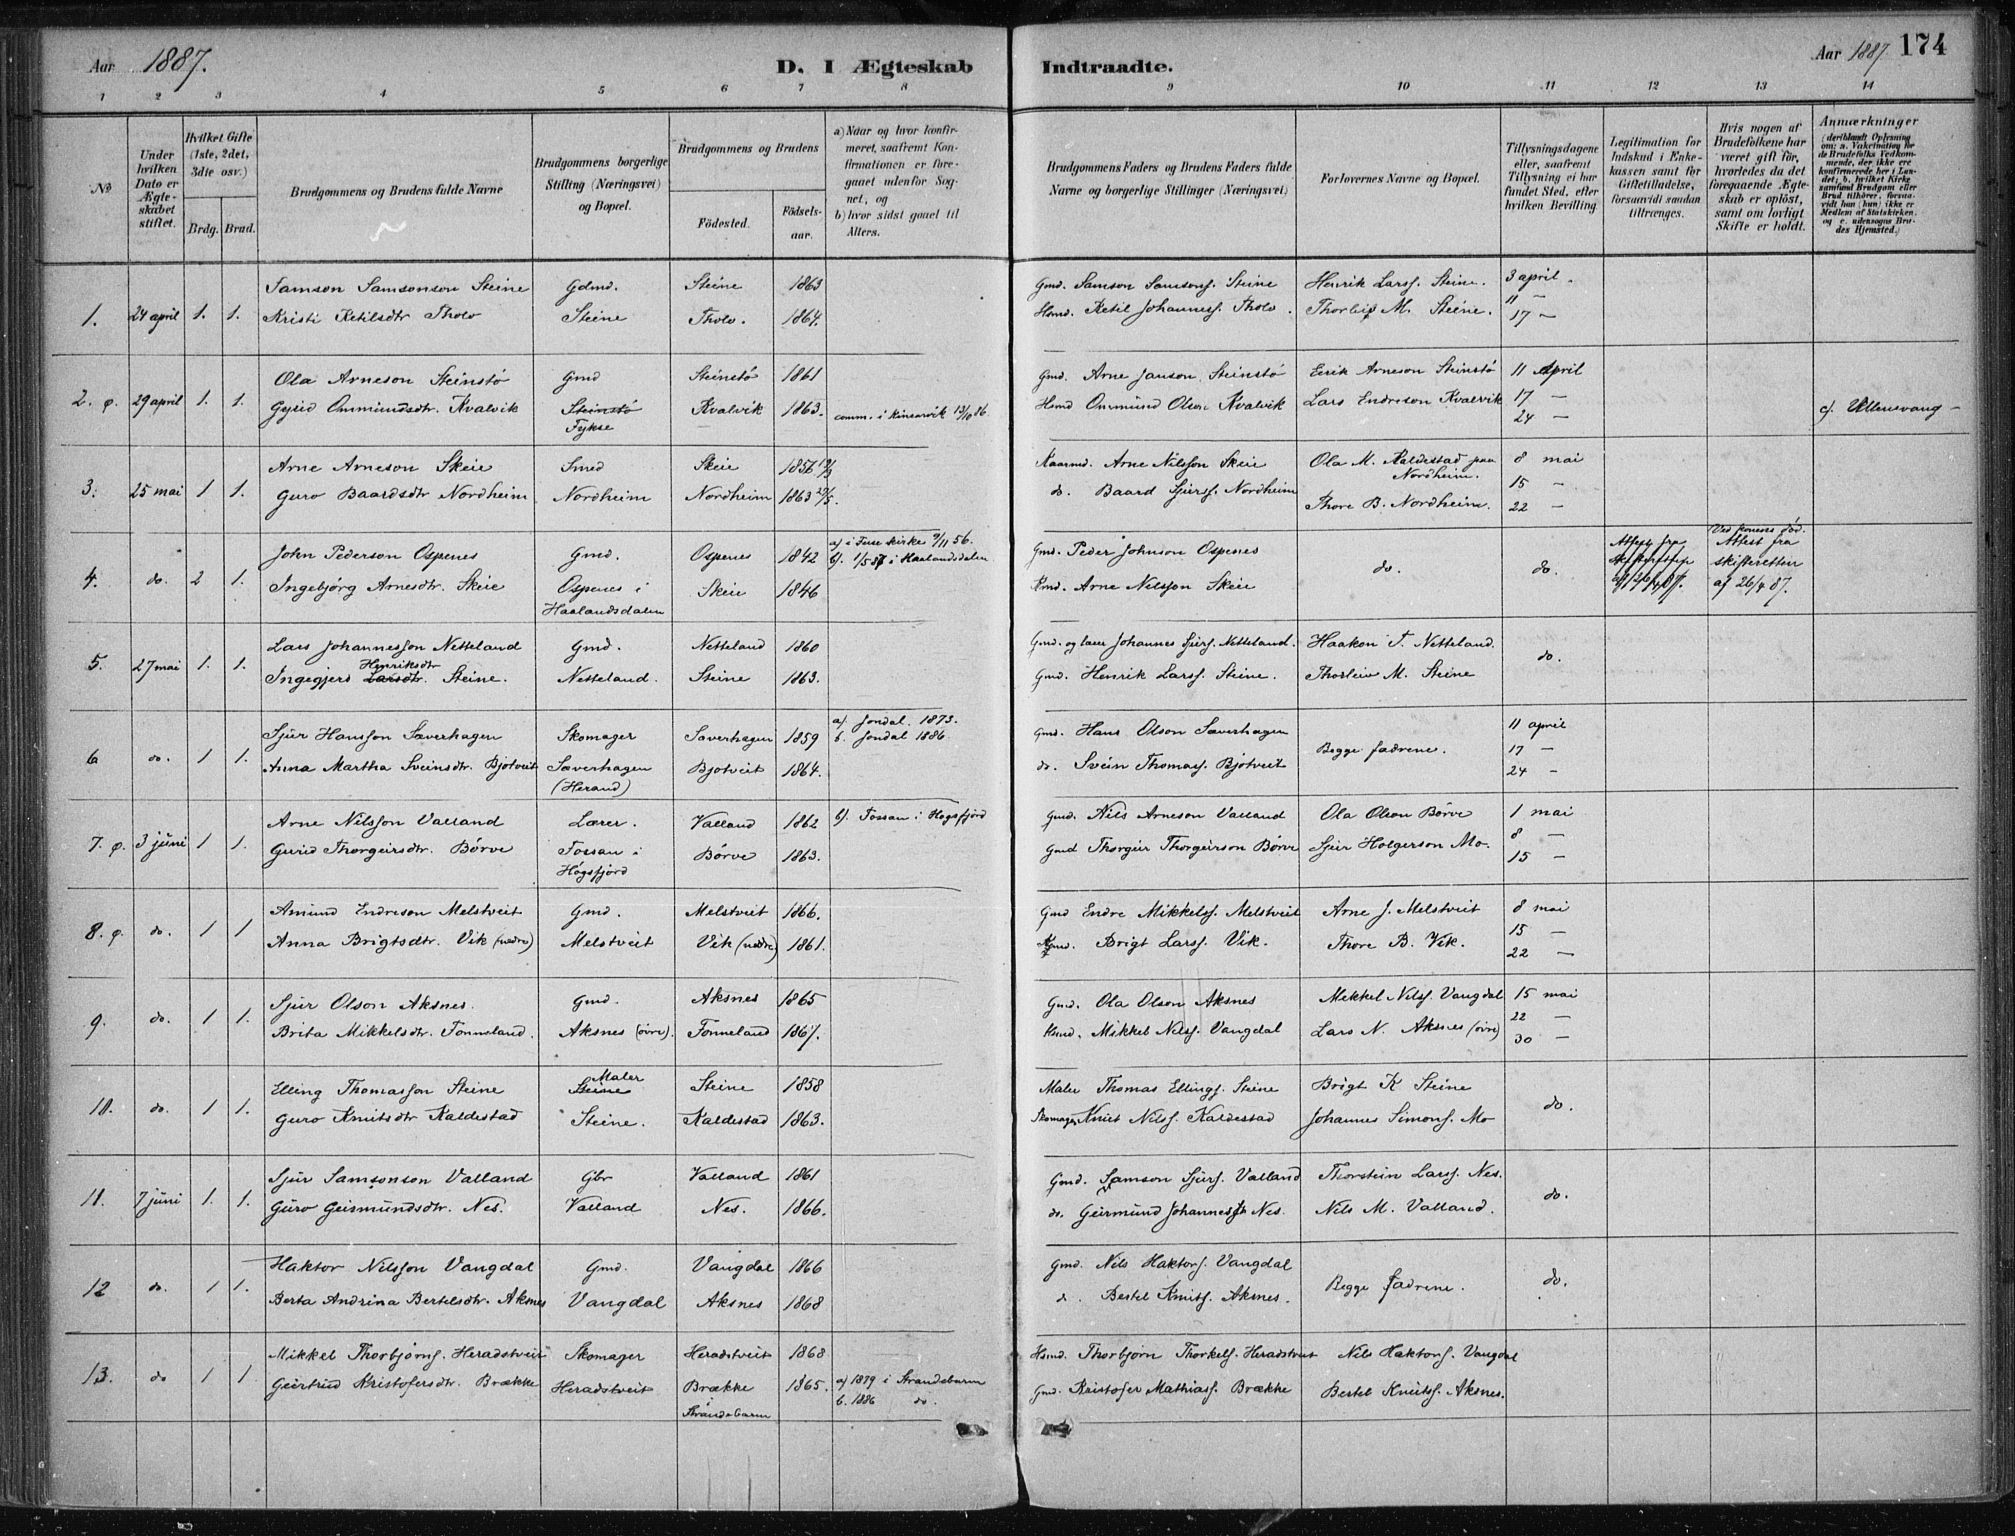 Aar 1887.
D. I Ægteskab Indtraadte.
Aar 1887. 174
1 2 3 4 5 6 7 8 9 10 11 12 13 14
No
Under hvilken Dato er Ægteskabet stiftet.
Hvilket Gifte (1ste, 2det, 3die osv.)
Brdg. Brud.
Brudgommens og Brudens fulde Navne
Brudgommens borgerlige Stilling (Næringsvei) og Bopæl.
Brudgommens og Brudens
Födested. Födsels-aar.
a) Naar og hvor konfirmeret, saafremt Konfirmationen er foregaaet udenfor Sognet, og
b) hvor sidst gaaet til Alters.
Brudgommens Faders og Brudens Faders fulde Navne og borgerlige Stillinger (Næringsvei)
Forlovernes Navne og Bopæl.
Tillysningsdagene eller, saafremt Tillysning ei har fundet Sted, efter hvilken Bevilling
Legitimation for Indskud i Enkekassen samt for Giftetilladelse, forsaavidt saadan tiltrænges.
Hvis nogen af Brudefolkene har været gift för, hvorledes da det foregaaende Ægteskab er oplöst, samt om lovligt Skifte er holdt.
Anmærkninger (deriblandt Oplysning om: a. Vakcination for de Brudefolks Vedkommende, der ikke ere konfirmerede her i Landet; b. hvilket Kirkesamfund Brudgom eller Brud tilhörer, forsaavidt han (hun) ikke er Medlem af Statskirken, og c. udensogns Brudes Hjemsted.)
1. 24 april 1. 1. Samson Samsonson Steine Gdmd. Steine 1863 Gmd. Samson Samsons. Steine Henrik Larss. Steine. 3 april
Kristi Ketilsdtr Tholo Steine Tholo. 1864. Hsmd. Ketil Johanness. Tholo. Thorleif M. Steine. 11 – 17 –
2. φ. 29 april 1. 1. Ola Arneson Steinstø Gmd Steinstø 1861 Gmd. Arne Janson Steinstø Eirik Arneson Steinstø 11 April
Gyrid Ommundsdtr. Kvalvik Steinstø Kvalvik 1863. comm. i Kinsarvik 13/10 86 Hsmd Ommund Olson Kvalvik Lars Endreson Kvalvik 17 – c). Ullensvang –
Fykse 24 –
3. 25 mai 1 1. Arne Arneson Skeie Smed Skeie 1856 Kaarmd. Arne Nilsson Skeie Ola M. Kaldestad paa Nordheim. 8 mai
Guro Baardsdtr Nordheim Nordheim Nordheim 1863 do. Baard Sjurs. Nordheim Thore B. Nordheim. 15 – 22 –
4. do. 2 1. John Pederson Ospenes Gmd. Ospenes 1842 a) i Fuse kirke 9/11 56. Gmd. Peder Johnson Ospenes do. do. Attest fra Ved konens död. Attest fra
b). 1/5 87 i Haalandsdalen
Ingebjørg Arnesdtr. Skeie Ospenes i Haalandsdalen Skeie 1846 Kmd. Arne Nilsson Skeie skifteretten af 26/4 87.
5. 27 mai 1. 1. Lars Johannesson Netteland Gmd. Netteland 1860 Gmd. og lærer Johannes Sjurs. Netteland. Haakon T. Netteland. do.
Henriksdtr
Ingegjerd Larsdtr. Steine. Netteland. Steine 1863. Gmd. Henrik Larss. Steine. Thorleiv M. Steine
6 do. 1 1. Sjur Hansson Sæverhagen Skomager Saverhagen 1859 a). Jondal. 1873. b. Jondal 1886 Gmd. Hans Olson Sæverhagen Begge fædrene. 11 april
Anna Martha Sveinsdtr. Bjotveit Sæverhagen (Herand) Bjotveit 1864. do. Svein Thomass. Bjotveit 17 – 24 –
7. φ. 3 juni 1 1. Arne Nilsson Valland Lærer. Valland 1862 b). Fossan i Høgsfjord Gmd. Nils Arneson Valland Ola Olson Börve 1 mai
Gurid Thorgeirsdtr. Börve Fossan i Høgsfjord Börve 1863. Gmd Thorgeir Thorgeirson Börve Sjur Holgerson Mo. 8 – 15 –
8. φ. do. 1 1 Amund Endreson Melstveit Gmd. Melstveit 1866. Gmd Endre Mikkels. Melstveit Arne J. Melstveit 8 mai
Anna Brigtsdtr. Vik (nedre) Melstveit Vik (nedre) 1861. Gmd. Brigt Larss. Vik. Thore B. Vik. 15 – 22 –
9. do. 1 1. Sjur Olson Aksnes. Gmd. Aksnes 1865 Gmd. Ola Olson Aksnes Mikkel Nilss. Vangdal 15 mai
Brita Mikkelsdtr. Tonneland. Aksnes (övre). Tonneland 1867. Hsmd. Mikkel Nilss. Vangdal Lars N. Aksnes (övre) 22 – 30 –
10. do. 1 1. Elling Thomasson Steine Maler Steine Steine 1858 Maler Thomas Ellings. Steine Brigt K Steine do.
Guro Knutsdtr Kaldestad Steine. Kaldestad 1863. Skomager Knut Nilss. Kaldestad Johannes Simons. Mo
11. 7 juni 1. 1. Sjur Samsonson Valland Gbr Valland 1861 Gmd. Samson Sjurs. Valland Thorstein Larss. Nes. do.
Guro Geirmundsdtr. Nes. Valland Nes. 1866. do. Geirmund Johanness. Nes. Nils M. Valland.
12 do. 1 1. Haktor Nilsson Vangdal Gmd. Vangdal 1866 Gmd. Nils Haktors. Vangdal Begge fædrene. do.
Berta Andrina Bertelsdtr. Aksnes Vangdal Aksnes 1868 d. Bertel Knuts. Aksnes.
13. do 1 1 Mikkel Thorbjørns. Heradstveit Skomager Heradstveit 1868 Hsmd. Thorbjørn Thorkels. Heradstveit Nils Haktors. Vangdal
Geirtrud Kristofersdtr. Brække Heradstveit Brække Strandebarm 1865. a) 1879 i Strandebarm b. 1886 do. Gmd. Kristofer Mathiass. Brække Bertel Knuts. Aksnes.